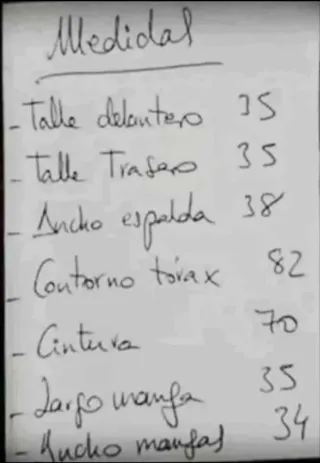 Medidas
- Talle delantero 35
- Talle Trasero 35
- Ancho espalda 38
- Contorno tórax 82
- Cintura 70
- Largo manga 35
- Ancho mangas 34